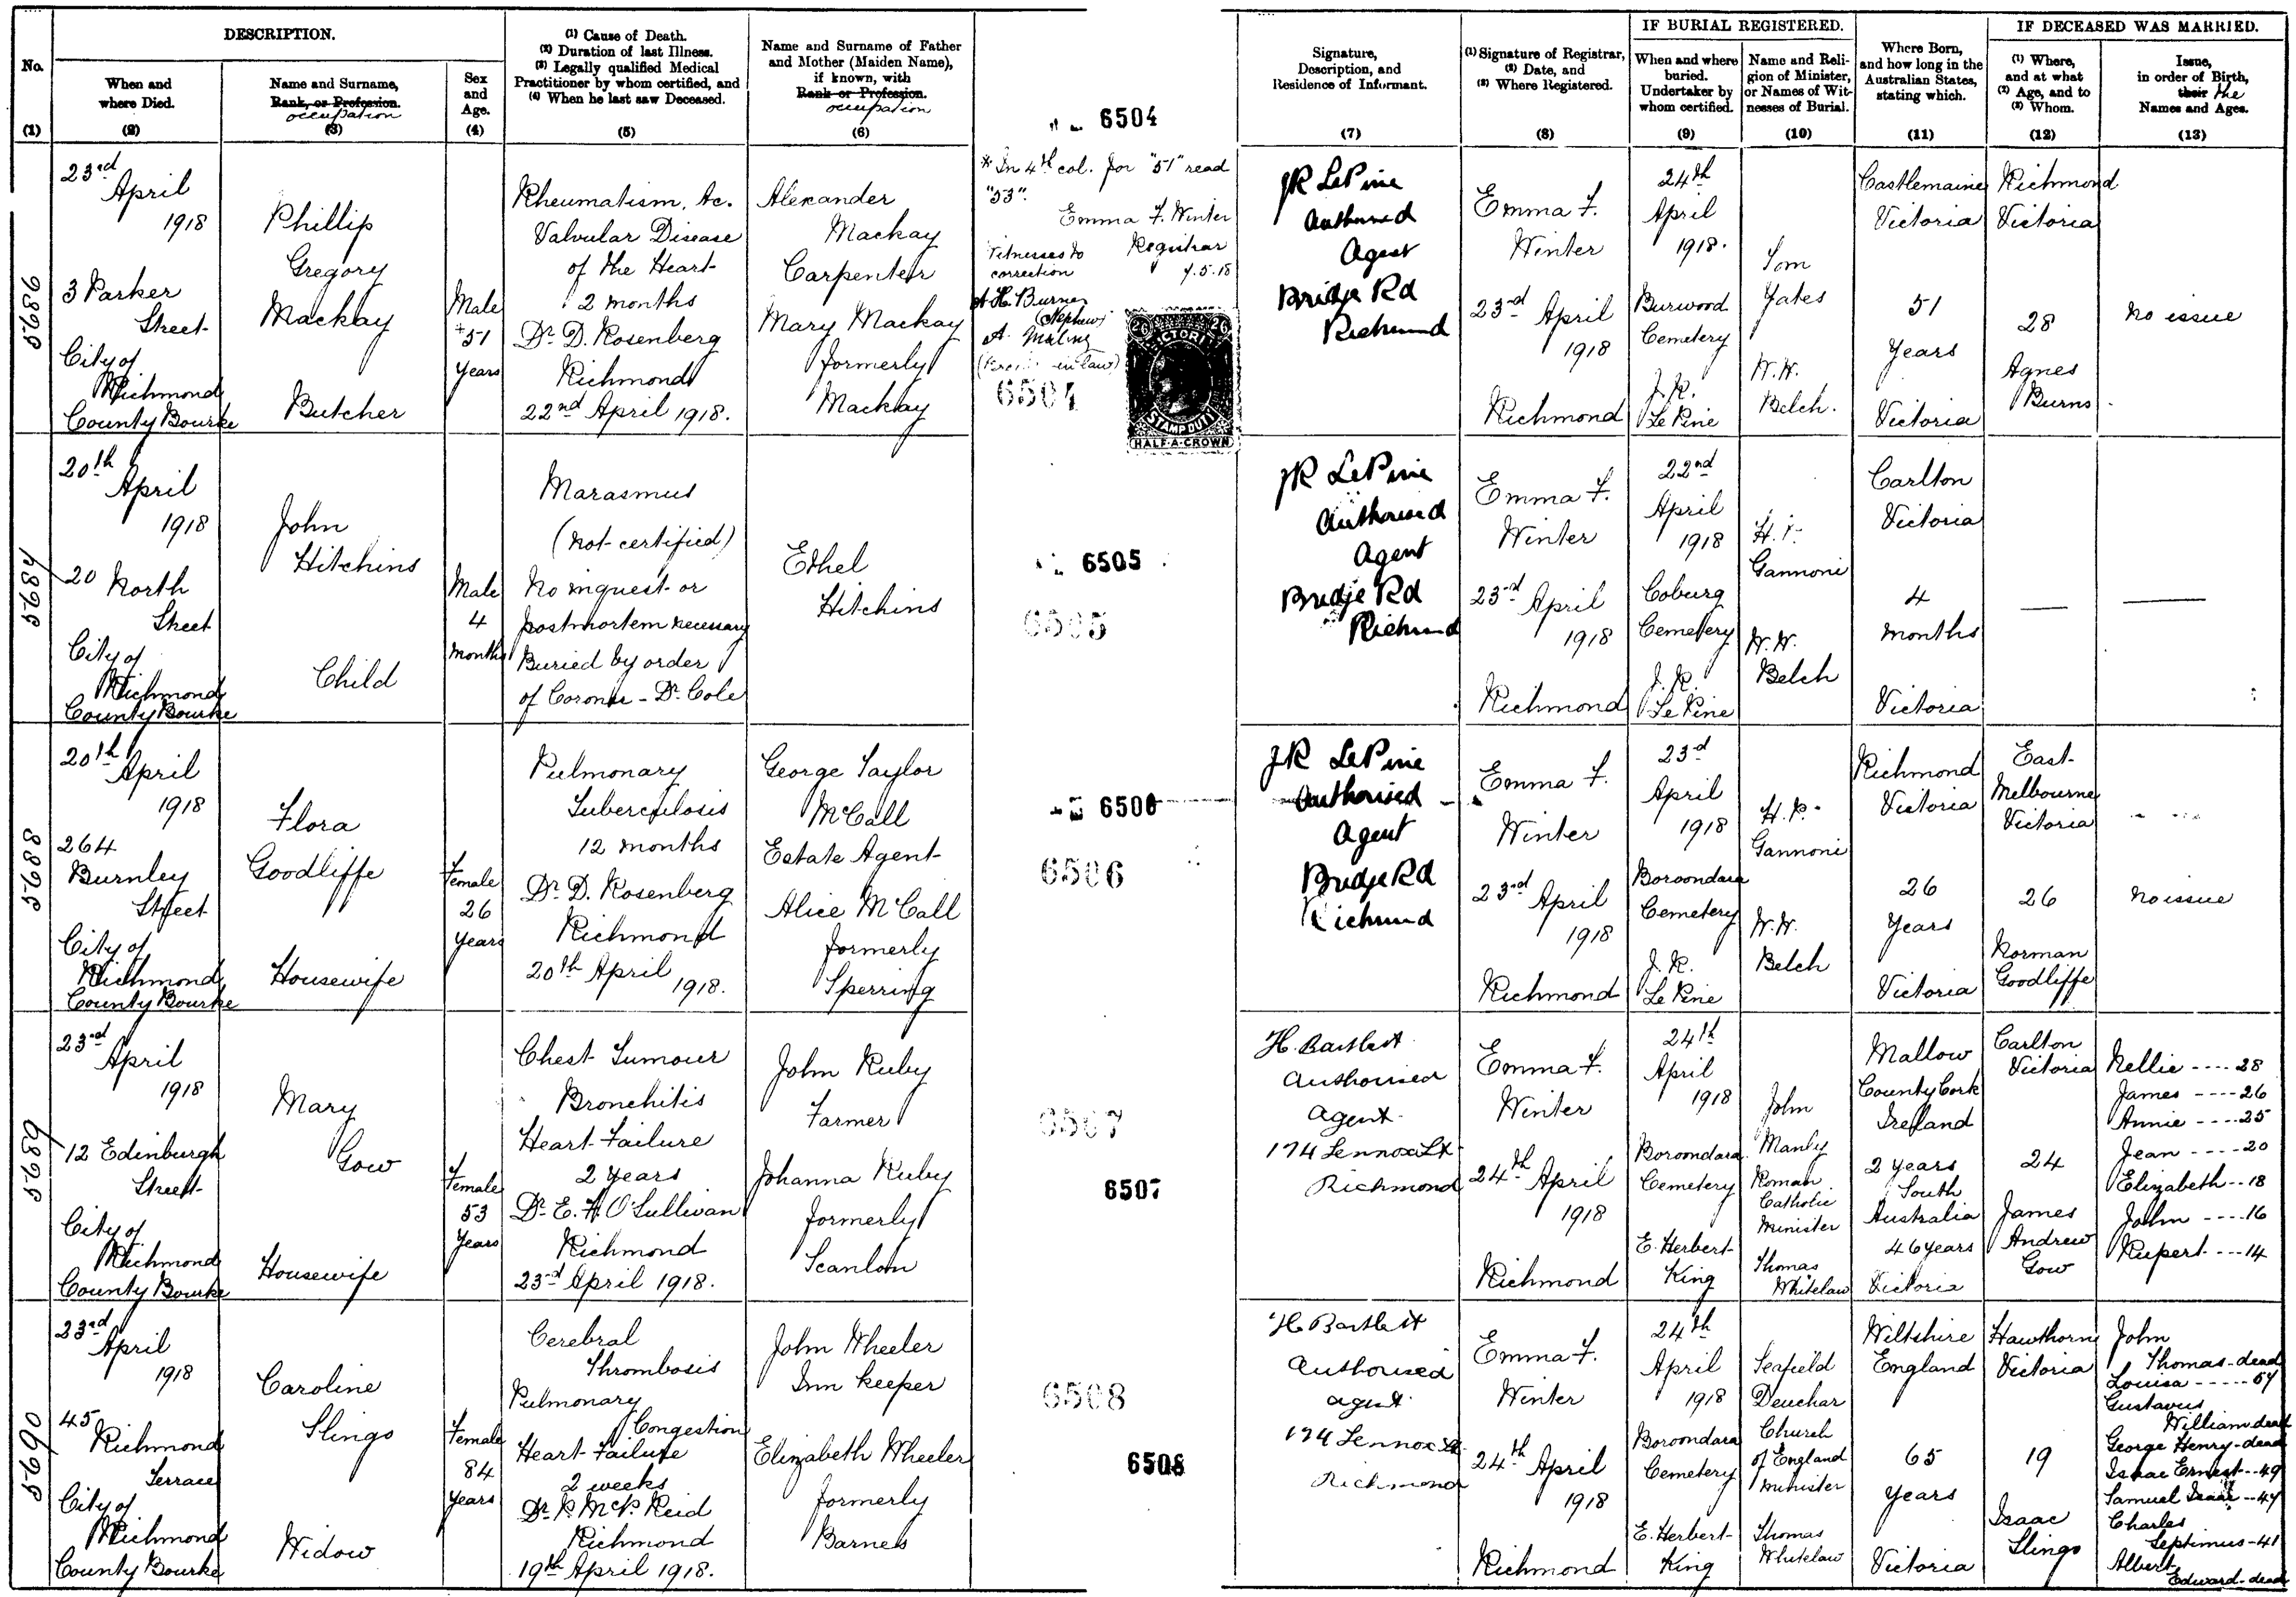 DESCRIPTION.
No.
(1)
When and
where Died.
(2)
Name and Surname,
Rank, or Profession.
occupation
(3)
Sex
and
Age.
(4)
(1) Cause of Death.
(2) Duration of last Illness.
(3) Legally qualified Medical
Practitioner by whom certified, and
(4) When he last saw Deceased.
(5)
Name and Surname of Father
and Mother (Maiden Name),
if known, with
Rank or Profession.
occupation
(6)
Signature,
Description, and
Residence of Informant.
(7)
(1) Signature of Registrar,
(2) Date, and
(3) Where Registered.
(8)
IF BURIAL REGISTERED.
When and where
buried.
Undertaker by
whom certified.
(9)
Name and Reli-
gion of Minister,
or Names of Wit-
nesses of Burial.
(10)
Where Born,
and how long in the
Australian States,
stating which.
(11)
IF DECEASED WAS MARRIED.
(1) Where,
and at what
(2) Age, and to
(3) Whom.
(12)
Issue,
in order of Birth,
their the
Names and Ages.
(13)
5986
23rd
April
1918
3 Parker
Street
City of
Richmond
County Bourke
Phillip
Gregory
Mackay
Butcher
Male
*51
Years
Rheumatism, Ac.
Valvular Disease
of the Heart
2 months
Dr. D. Rosenberg
Richmond
22nd April 1918.
Alexander
Mackay
Carpenter
Mary Mackay
formerly
Mackay
6504
* In 4th col. for "51" read
"53".
Emma F. Winter
Registrar
Witnesses to
correction
7.5.18
(Nephew)
in law)
6504
26 26
VICTORIA
STAMP DUTY
HALF-A-CROWN
JR LePine
Authorised
Agent
Bridge Rd
Richmond
Emma F.
Winter
23rd April
1918
Richmond
24th
April
1918.
Burwood
Cemetery
J. R.
Le Pine
Tom
Yates
W. W.
Belch.
Castlemaine
Victoria
51
Years
Victoria
Richmond
Victoria
28
Agnes
Burns
No issue
5987
20th
April
1918
20 North
Street
City of
Richmond
County Bourke
John
Hitchins
Child
Male
4
Months
Marasmus
(Not certified)
No inquest or
postmortem necessary
Buried by order
of Coroner - Dr. Cole
Ethel
Hitchins
6505
6505
JR LePine
Authorised
Agent
Bridge Rd
Richmond
Emma F.
Winter
23rd April
1918
Richmond
22nd
April
1918
Coburg
Cemetery
J. R.
Le Pine
Gannoni
W. W.
Belch
Carlton
Victoria
4
Months
Victoria
5988
20th
April
1918
264
Burnley
Street
City of
Richmond
County Bourke
Flora
Goodliffe
Housewife
Female
26
Years
Pulmonary
Tuberculosis
12 months
Dr. D. Rosenberg
Richmond
20th April
1918.
George Taylor
McCall
Estate Agent
Alice McCall
formerly
Sperring
6506
6506
JR LePine
Authorised
Agent
Bridge Rd
Richmond
Emma F.
Winter
23rd April
1918
Richmond
23rd
April
1918
Boroondara
Cemetery
J. R.
Le Pine
Gannoni
W. W.
Belch
Richmond
Victoria
26
Years
Victoria
East
Melbourne
Victoria
26
Norman
Goodliffe
No issue
5989
23rd
April
1918
12 Edinburgh
Street
City of
Richmond
County Bourke
Mary
Gow
Housewife
Female
53
Years
Chest Tumour
Bronchitis
Heart Failure
2 Years
Dr. E. A. O'Sullivan
Richmond
23rd April 1918.
John Ruby
Farmer
Johanna Ruby
formerly
Scanlon
6507
6507
H. Bartlett
Authorised
Agent
174 Lennox St
Richmond
Emma F.
Winter
24th April
1918
Richmond
24th
April
1918
Boroondara
Cemetery
E. Herbert
King
John
Manly
Roman
Catholic
Minister
Thomas
Whitelaw
Mallow
County Cork
Ireland
2 years
South
Australia
46 years
Victoria
Carlton
Victoria
24
James
Andrew
Gow
Nellie ---- 28
James ---- 26
Annie ---- 25
Jean ---- 20
Elizabeth -- 18
John ---- 16
Rupert --- 14
5990
23rd
April
1918
45
Richmond
Terrace
City of
Richmond
County Bourke
Caroline
Slingo
Widow
Female
84
Years
Cerebral
Thrombosis
Pulmonary
Congestion
Heart Failure
2 weeks
Dr. P. McP. Reid
Richmond
19th April 1918.
John Wheeler
Inn keeper
Elizabeth Wheeler
formerly
Barnes
6508
6508
H Bartlett
Authorised
agent
174 Lennox St
Richmond
Emma F.
Winter
24th April
1918
Richmond
24th
April
1918
Boroondara
Cemetery
E. Herbert
King
Seafield
Deuchar
Church
of England
Minister
Thomas
Whitelaw
Wiltshire
England
65
Years
Victoria
Hawthorn
Victoria
19
Isaac
Slingo
John
Thomas - dead
Louisa ----- 57
Gustavus
William dead
George Henry - dead
Isaac Ernest -- 49
Samuel -- 47
Charles
Septimus - 41
Albert
Edward - dead